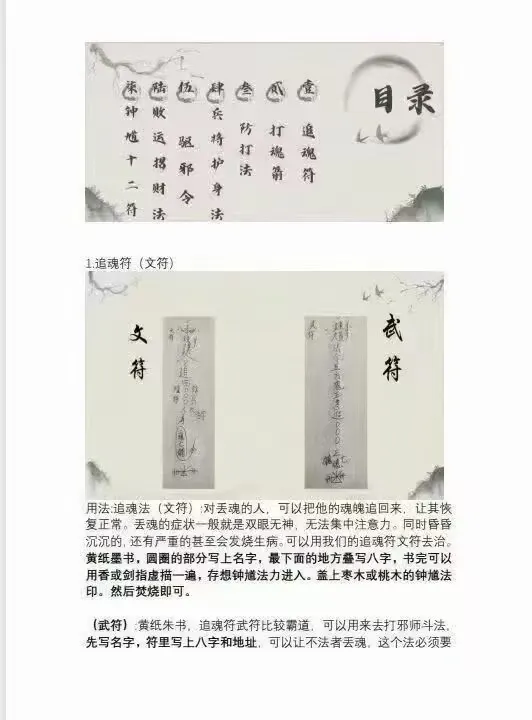 目录
壹 追魂符
贰 打魂箭
叁 防打法
肆 兵将护身法
伍 驱邪令
陆 败运招财法
柒 钟馗十二符
1.追魂符（文符）
文符
武符
用法:追魂法（文符）:对丢魂的人，可以把他的魂魄追回来，让其恢
复正常。丢魂的症状一般就是双眼无神，无法集中注意力。同时昏昏
沉沉的, 还有严重的甚至会发烧生病。可以用我们的追魂符文符去治。
黄纸墨书，圆圈的部分写上名字，最下面的地方叠写八字，书完可以
用香或剑指虚描一遍，存想钟馗法力进入。盖上枣木或桃木的钟馗法
印。然后焚烧即可。
（武符）:黄纸朱书，追魂符武符比较霸道，可以用来去打邪师斗法，
先写名字，符里写上八字和地址，可以让不法者丢魂，这个法必须要